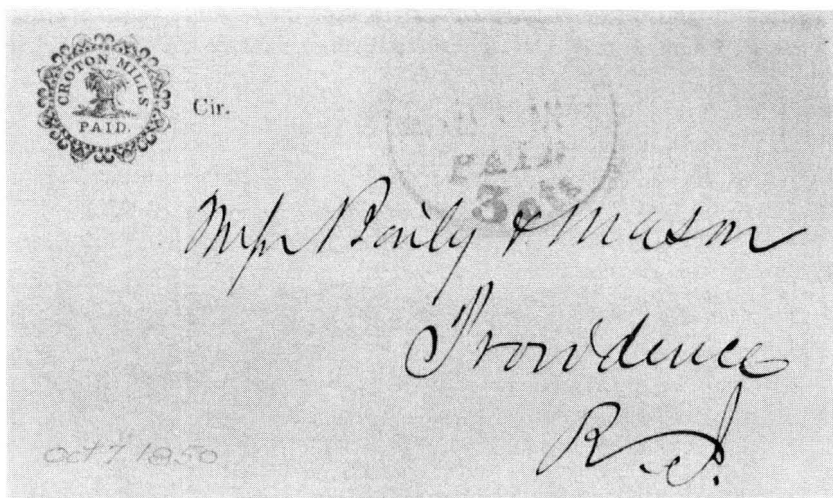 CROTON MILLS
PAID.
Cir.
PAID
3 cts
Baily & Mason
Providence
R.I.
Oct 7 1850